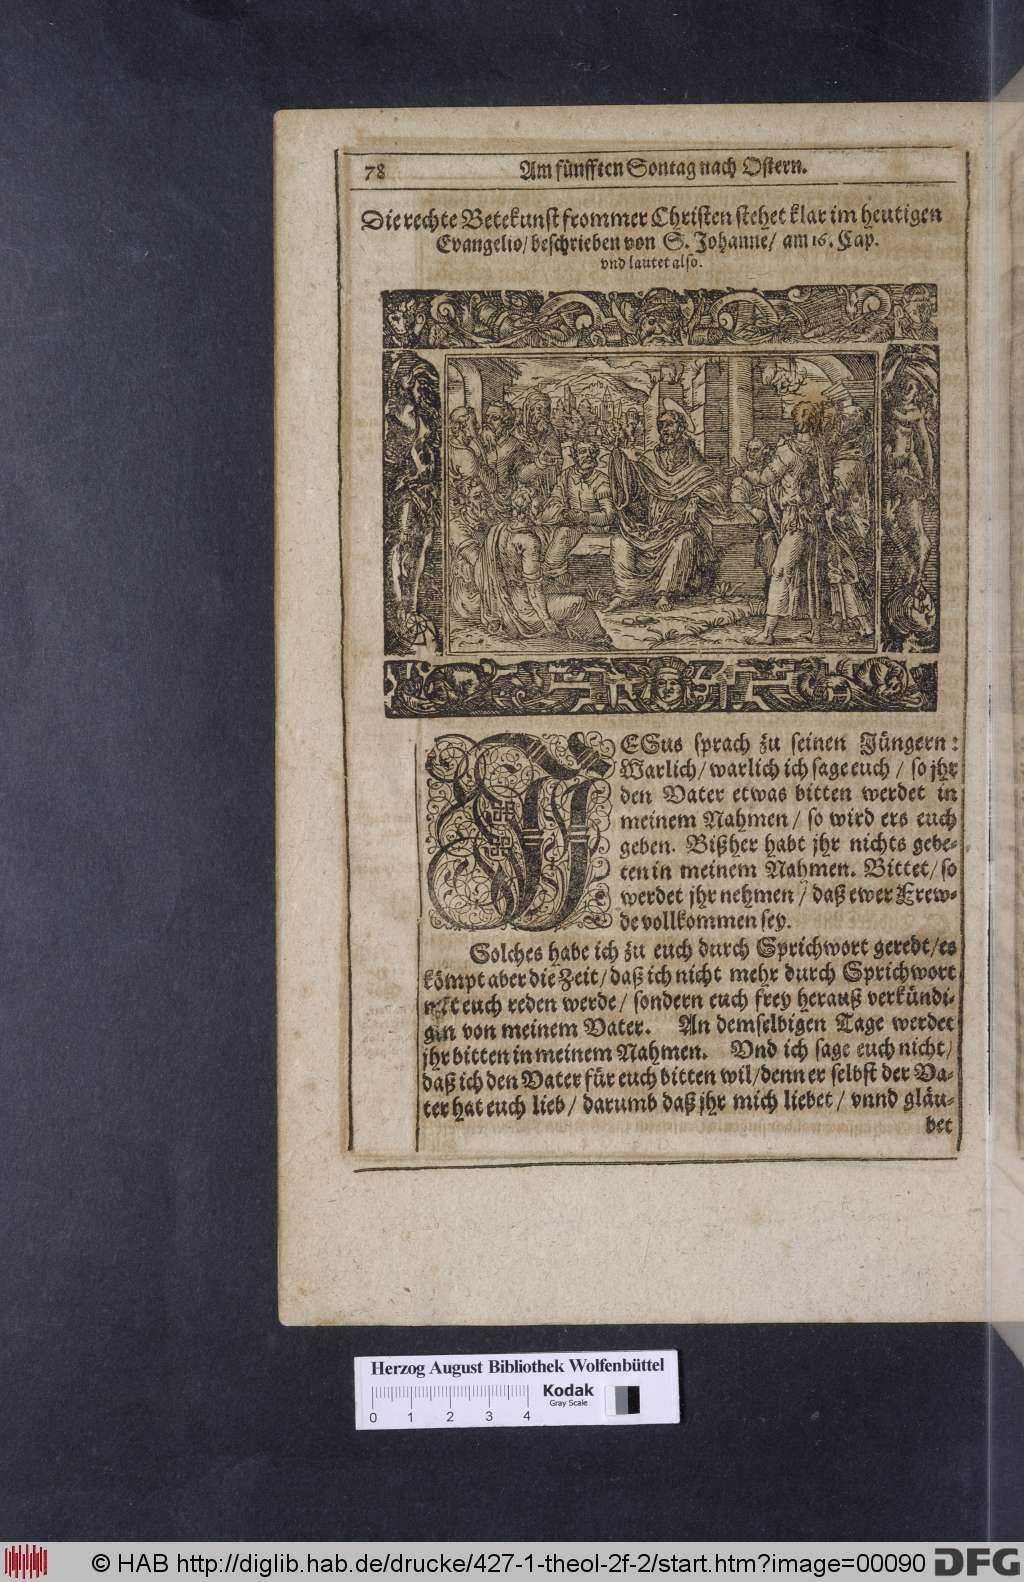 78 Am fünfften Sontag nach Ostern.
Die rechte Betekunst frommer Christen stehet klar im heutigen
Evangelio/ beschrieben von S. Johanne/ am 16. Cap.
vnd lautet also.
JESus sprach zu seinen Jüngern:
Warlich/ warlich ich sage euch / so jhr
den Vater etwas bitten werdet in
meinem Nahmen / so wird ers euch
geben. Bißher habt jhr nichts gebe-
ten in meinem Nahmen. Bittet/ so
werdet jhr nehmen / daß ewer Frew-
de vollkommen sey.
Solches habe ich zu euch durch Sprichwort geredt/ es
kömpt aber die Zeit/ daß ich nicht mehr durch Sprichwort
mit euch reden werde/ sondern euch frey herauß verkündi-
gen von meinem Vater. An demselbigen Tage werdet
jhr bitten in meinem Nahmen. Vnd ich sage euch nicht/
daß ich den Vater für euch bitten wil/ denn er selbst der Va-
ter hat euch lieb/ darumb daß jhr mich liebet / vnnd gläu-
bet
Herzog August Bibliothek Wolfenbüttel
0 1 2 3 4 Kodak
Gray Scale
© HAB http://diglib.hab.de/drucke/427-1-theol-2f-2/start.htm?image=00090 DFG